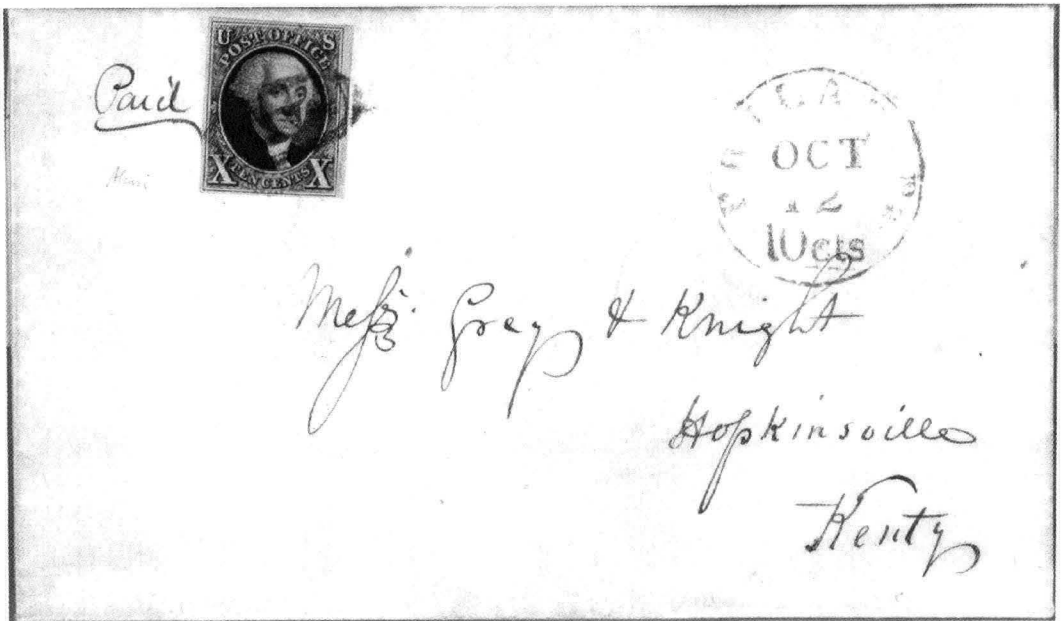 Paid
U S
POST OFFICE
X TEN CENTS X
OCT
12
10cts
Messrs. Grey & Knight
Hopkinsville
Kenty